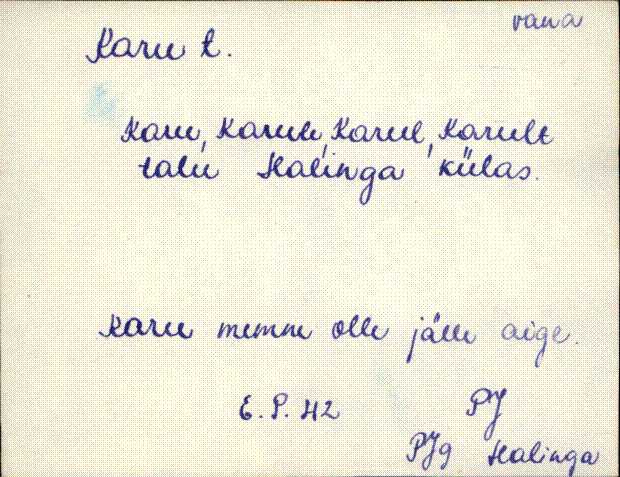 vana
Karu t.
Karu, Karule, Karul, Karult
talu Halinga külas.
Karu memme olle jälle aige.
E. P. 42
PJ
PJg Halinga